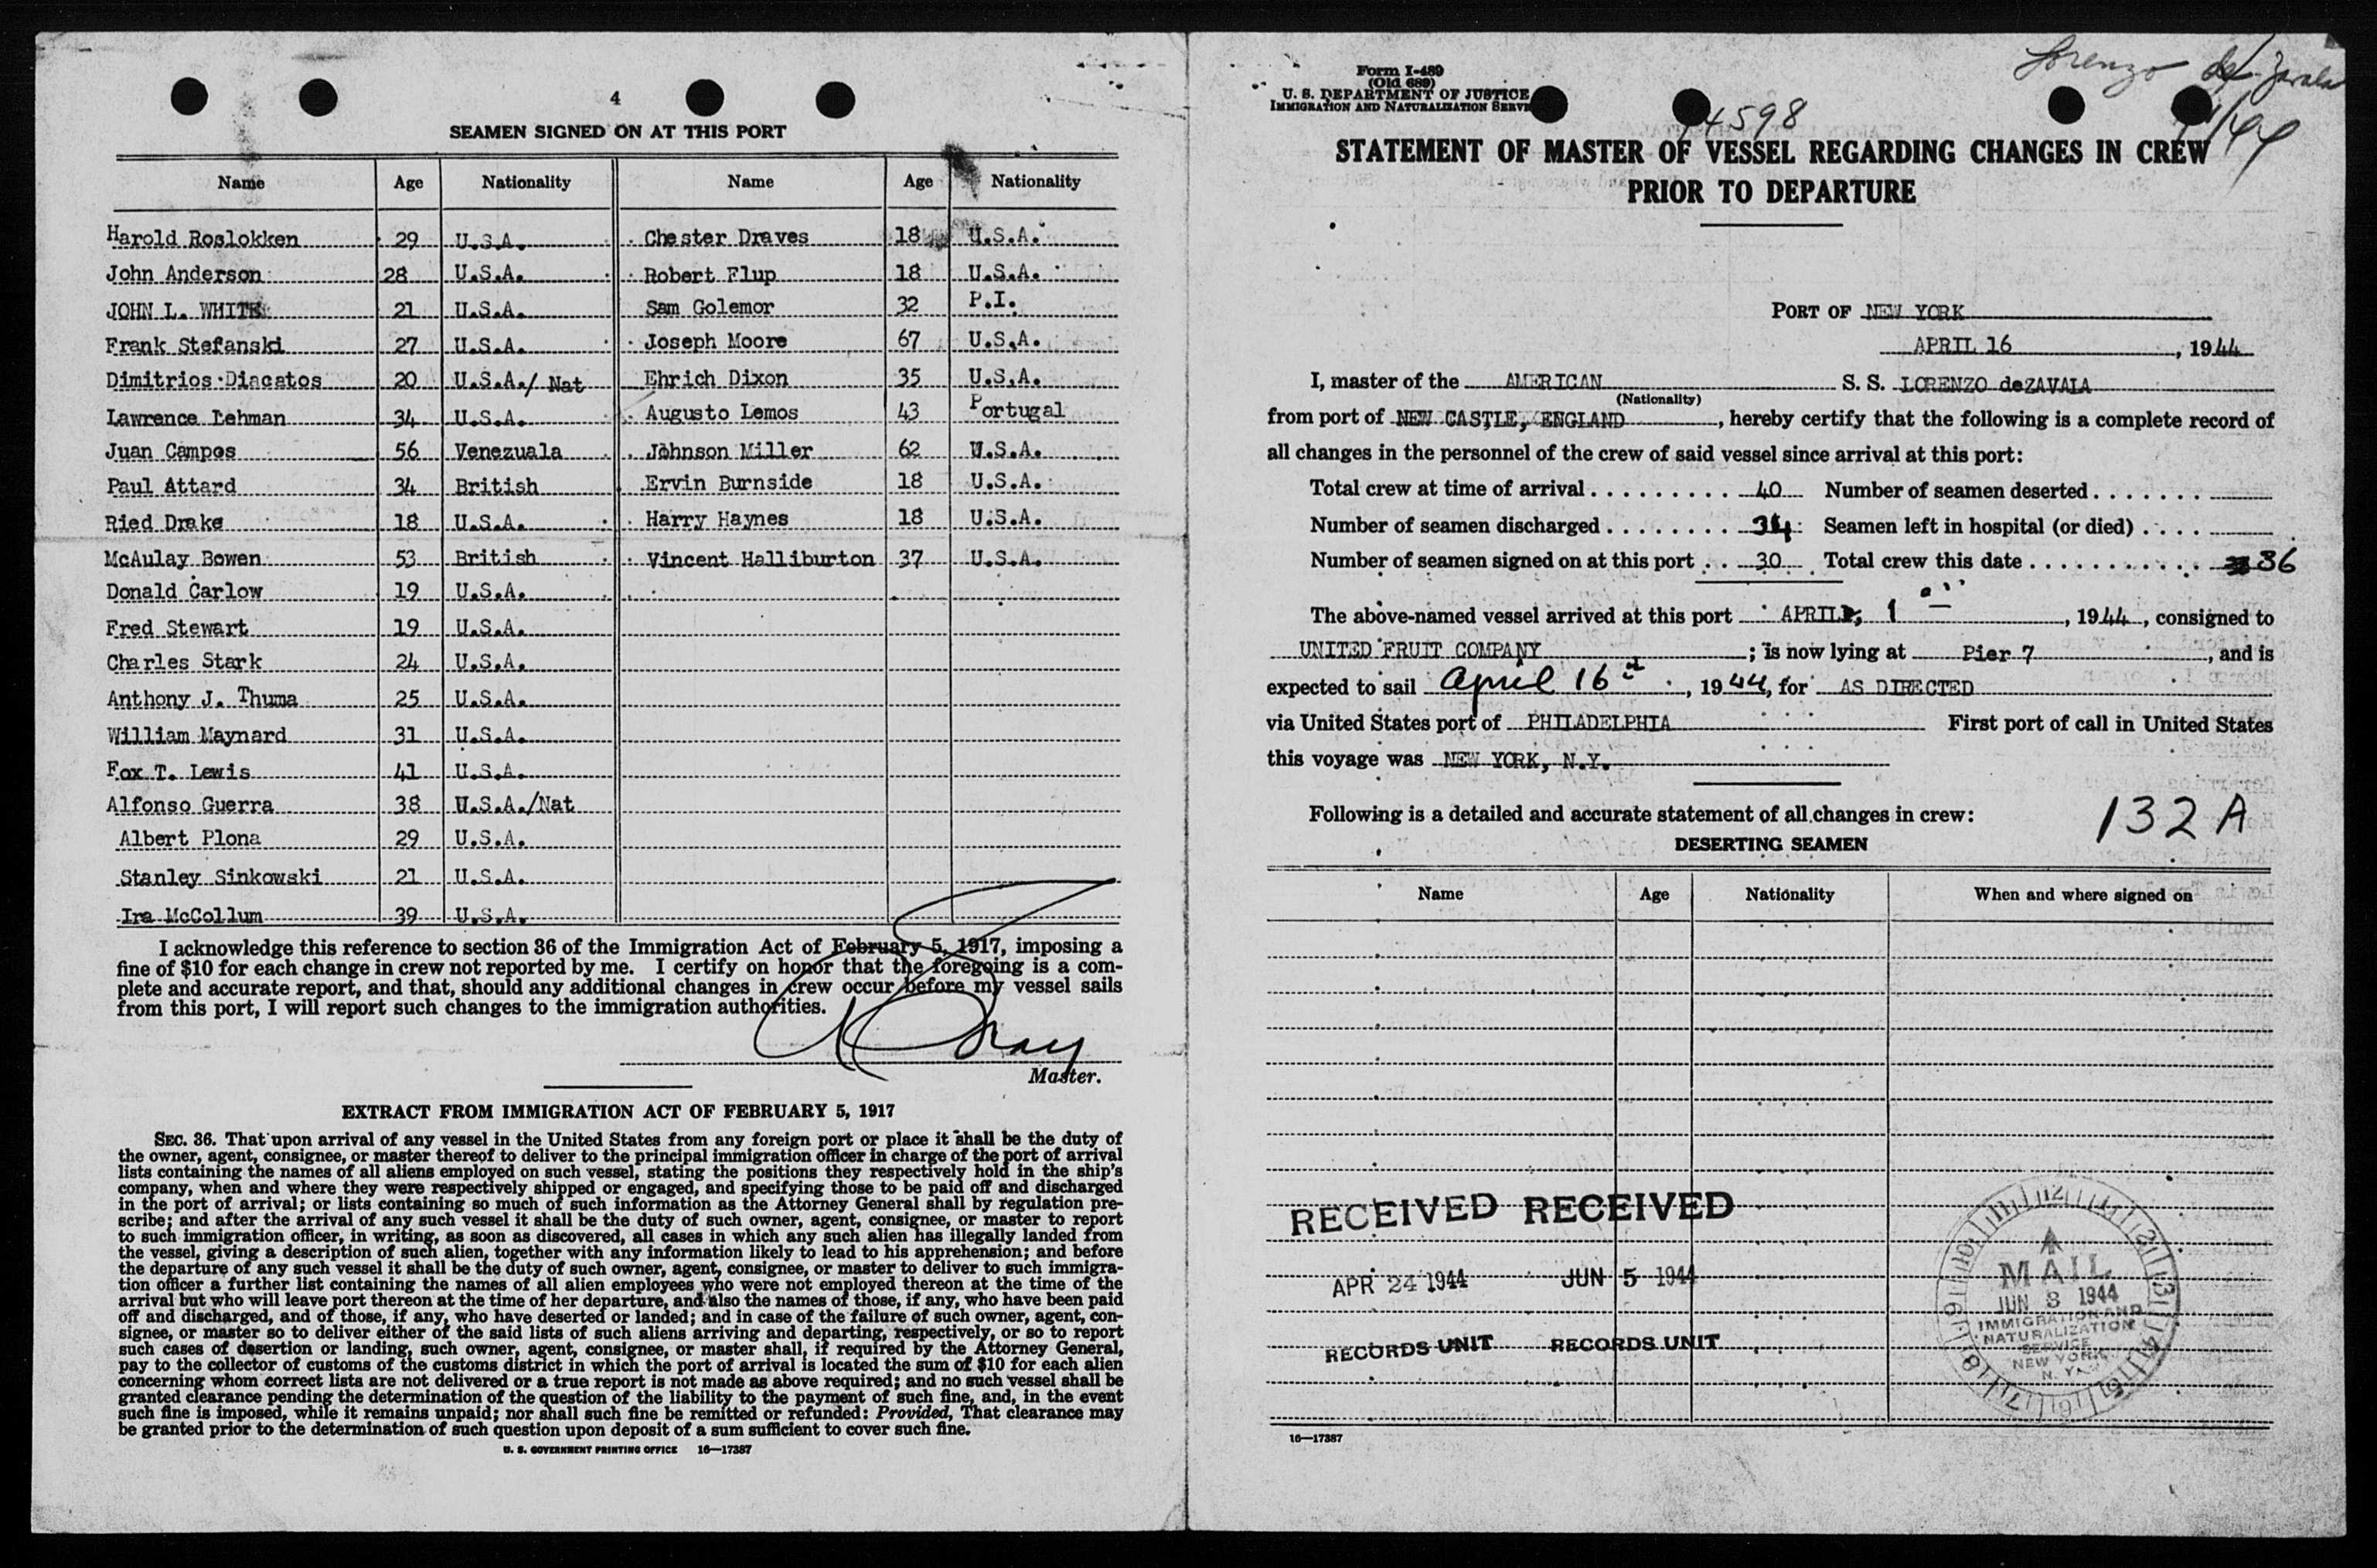 4
SEAMEN SIGNED ON AT THIS PORT
Name Age Nationality Name Age Nationality
Harold Roslokken 29 U.S.A. Chester Draves 18 U.S.A.
John Anderson 28 U.S.A. Robert Flup 18 U.S.A.
JOHN L. WHITE 21 U.S.A. Sam Golemor 32 P.I.
Frank Stefanski 27 U.S.A. Joseph Moore 67 U.S.A.
Dimitrios Diacatos 20 U.S.A./ Nat Ehrich Dixon 35 U.S.A.
Lawrence Lehman 34 U.S.A. Augusto Lemos 43 Portugal
Juan Campos 56 Venezuala Johnson Miller 62 U.S.A.
Paul Attard 34 British Ervin Burnside 18 U.S.A.
Ried Drake 18 U.S.A. Harry Haynes 18 U.S.A.
McAulay Bowen 53 British Vincent Halliburton 37 U.S.A.
Donald Carlow 19 U.S.A.
Fred Stewart 19 U.S.A.
Charles Stark 24 U.S.A.
Anthony J. Thuma 25 U.S.A.
William Maynard 31 U.S.A.
Fox T. Lewis 41 U.S.A.
Alfonso Guerra 38 U.S.A./Nat
Albert Plona 29 U.S.A.
Stanley Sinkowski 21 U.S.A.
Ira McCollum 39 U.S.A.
I acknowledge this reference to section 36 of the Immigration Act of February 5, 1917, imposing a
fine of $10 for each change in crew not reported by me. I certify on honor that the foregoing is a com-
plete and accurate report, and that, should any additional changes in crew occur before my vessel sails
from this port, I will report such changes to the immigration authorities.
Master.
EXTRACT FROM IMMIGRATION ACT OF FEBRUARY 5, 1917
SEC. 36. That upon arrival of any vessel in the United States from any foreign port or place it shall be the duty of
the owner, agent, consignee, or master thereof to deliver to the principal immigration officer in charge of the port of arrival
lists containing the names of all aliens employed on such vessel, stating the positions they respectively hold in the ship's
company, when and where they were respectively shipped or engaged, and specifying those to be paid off and discharged
in the port of arrival; or lists containing so much of such information as the Attorney General shall by regulation pre-
scribe; and after the arrival of any such vessel it shall be the duty of such owner, agent, consignee, or master to report
to such immigration officer, in writing, as soon as discovered, all cases in which any such alien has illegally landed from
the vessel, giving a description of such alien, together with any information likely to lead to his apprehension; and before
the departure of any such vessel it shall be the duty of such owner, agent, consignee, or master to deliver to such immigra-
tion officer a further list containing the names of all alien employees who were not employed thereon at the time of the
arrival but who will leave port thereon at the time of her departure, and also the names of those, if any, who have been paid
off and discharged, and of those, if any, who have deserted or landed; and in case of the failure of such owner, agent, con-
signee, or master so to deliver either of the said lists of such aliens arriving and departing, respectively, or so to report
such cases of desertion or landing, such owner, agent, consignee, or master shall, if required by the Attorney General,
pay to the collector of customs of the customs district in which the port of arrival is located the sum of $10 for each alien
concerning whom correct lists are not delivered or a true report is not made as above required; and no such vessel shall be
granted clearance pending the determination of the question of the liability to the payment of such fine, and, in the event
such fine is imposed, while it remains unpaid; nor shall such fine be remitted or refunded: Provided, That clearance may
be granted prior to the determination of such question upon deposit of a sum sufficient to cover such fine.
U. S. GOVERNMENT PRINTING OFFICE 16—17387
Form I-489
(Old 689)
U. S. DEPARTMENT OF JUSTICE
IMMIGRATION AND NATURALIZATION SERVI
Lorenzo de Zavala
4598
STATEMENT OF MASTER OF VESSEL REGARDING CHANGES IN CREW
PRIOR TO DEPARTURE
PORT OF NEW YORK
APRIL 16, 1944
I, master of the AMERICAN S. S. LORENZO deZAVALA
(Nationality)
from port of NEW CASTLE, ENGLAND, hereby certify that the following is a complete record of
all changes in the personnel of the crew of said vessel since arrival at this port:
Total crew at time of arrival 40 Number of seamen deserted
Number of seamen discharged 34 Seamen left in hospital (or died)
Number of seamen signed on at this port 30 Total crew this date 36
The above-named vessel arrived at this port APRIL, 1, 1944, consigned to
UNITED FRUIT COMPANY; is now lying at Pier 7, and is
expected to sail April 16, 1944, for AS DIRECTED
via United States port of PHILADELPHIA First port of call in United States
this voyage was NEW YORK, N.Y.
Following is a detailed and accurate statement of all changes in crew:
132 A
DESERTING SEAMEN
Name Age Nationality When and where signed on
RECEIVED RECEIVED
APR 24 1944 JUN 5 1944
RECORDS UNIT RECORDS UNIT
MAIL
JUN 3 1944
IMMIGRATION AND
NATURALIZATION
SERVICE
NEW YORK
N. Y.
16—17387